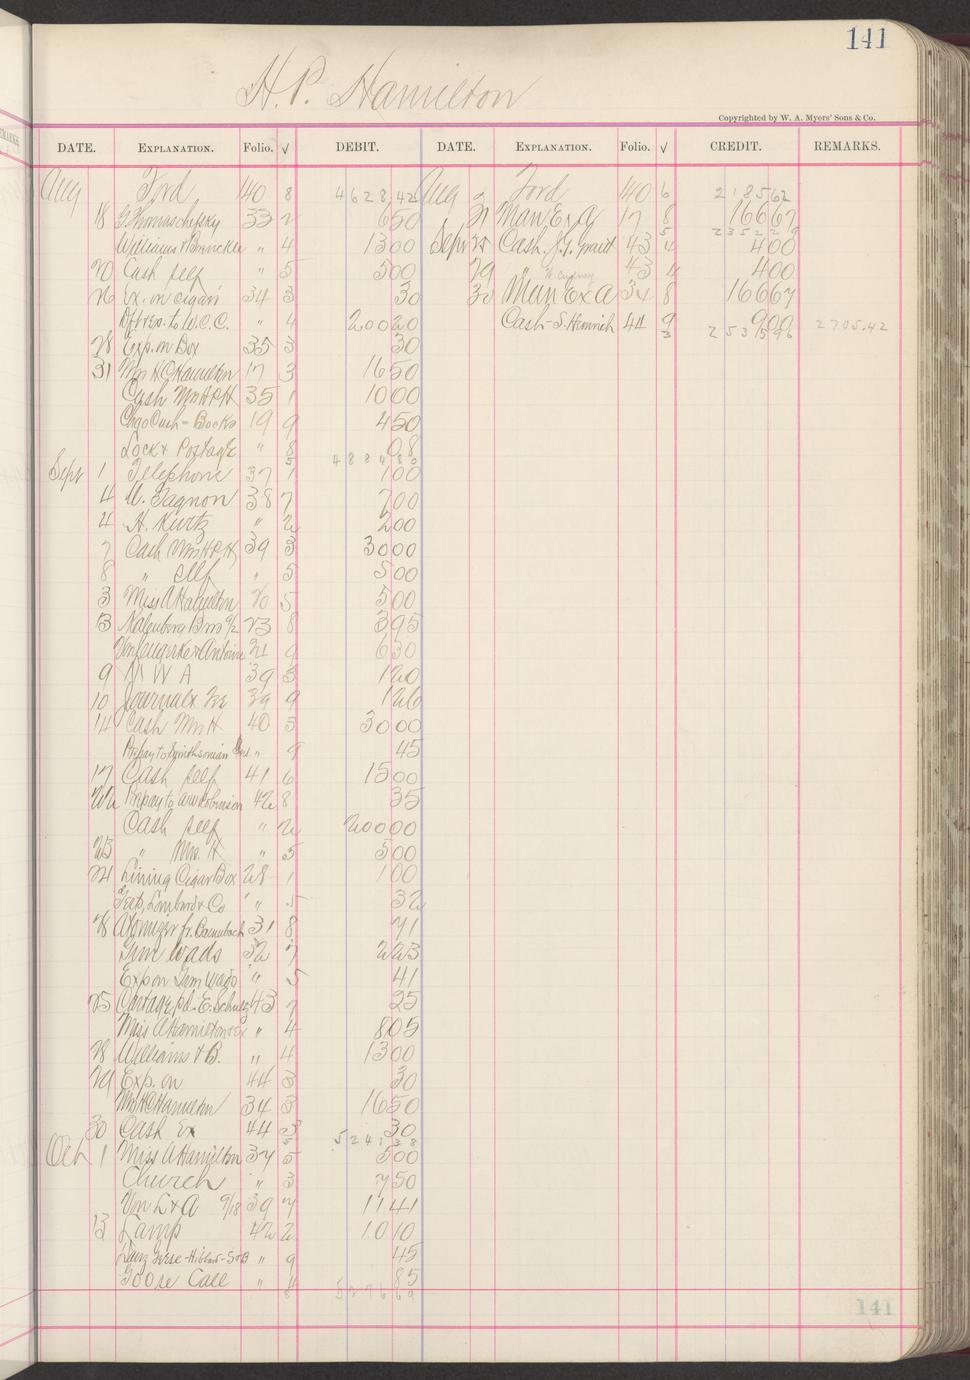 141
H. P. Hamilton
Copyrighted by W. A. Myers' Sons & Co.
DATE. EXPLANATION. Folio. √ DEBIT. DATE. EXPLANATION. Folio. √ CREDIT. REMARKS.
Aug Ford 40 8 4628,42 Aug 2 Ford 40 6 218562
18 33 2 650 31 Man Ex A 17 8 16667
5 235229
Williams & Brinckle " 4 1300 Sept 25 Cash. J. G. 43 4 400
20 Cash self " 5 500 29 " 43 4 400
26 Ex. on cigars 34 3 30 30 Man Ex A 34 8 16667
to W. C. C. " 4 20020 Cash - S. Heinrich 44 9 900
3 253596 2705.42
28 Exp. on Box 35 3 30
31 Mrs H C Hamilton 17 3 1650
Cash Mrs H P H 35 1 1000
Chgo Cash - Books 19 9 450
Lock & Postage " 8 08
5 488480
Sept 1 Telephone 37 1 100
4 W. Gagnon 38 7 700
4 H. Kurtz " 2 200
7 Cash Mrs H P H 39 3 3000
8 " self " 5 500
3 Miss A Hamilton 20 5 500
13 23 8 395
& Antoine 21 9 630
9 N W A 39 3 120
10 Journal & 39 9 126
14 Cash Mrs H 40 5 3000
Prepay to Smithsonian Inst. " 9 45
17 Cash self 41 6 1500
22 Prepay to Robinson 42 8 35
Cash self " 2 20000
23 " Mrs. H " 5 500
24 Lining Cigar Box 28 1 100
Lombard & Co " 5 32
28 Atomizer fr. 31 8 71
Gun Wads 32 7 223
Exp on Gun Wads " 5 41
25 Cartage pd. E. Schultz 43 7 25
Miss A Hamilton " 4 805
28 Williams & B. " 4 1300
29 Exp. on 44 3 30
Mrs H C Hamilton 34 3 1650
30 Cash Ex 44 3 30
5 524238
Oct 1 Miss A Hamilton 37 5 500
Church " 3 750
Von L & A 9/18 39 7 1141
13 Lamp 42 2 1010
" 9 45
Goose Call " 4 85
8 527669
141